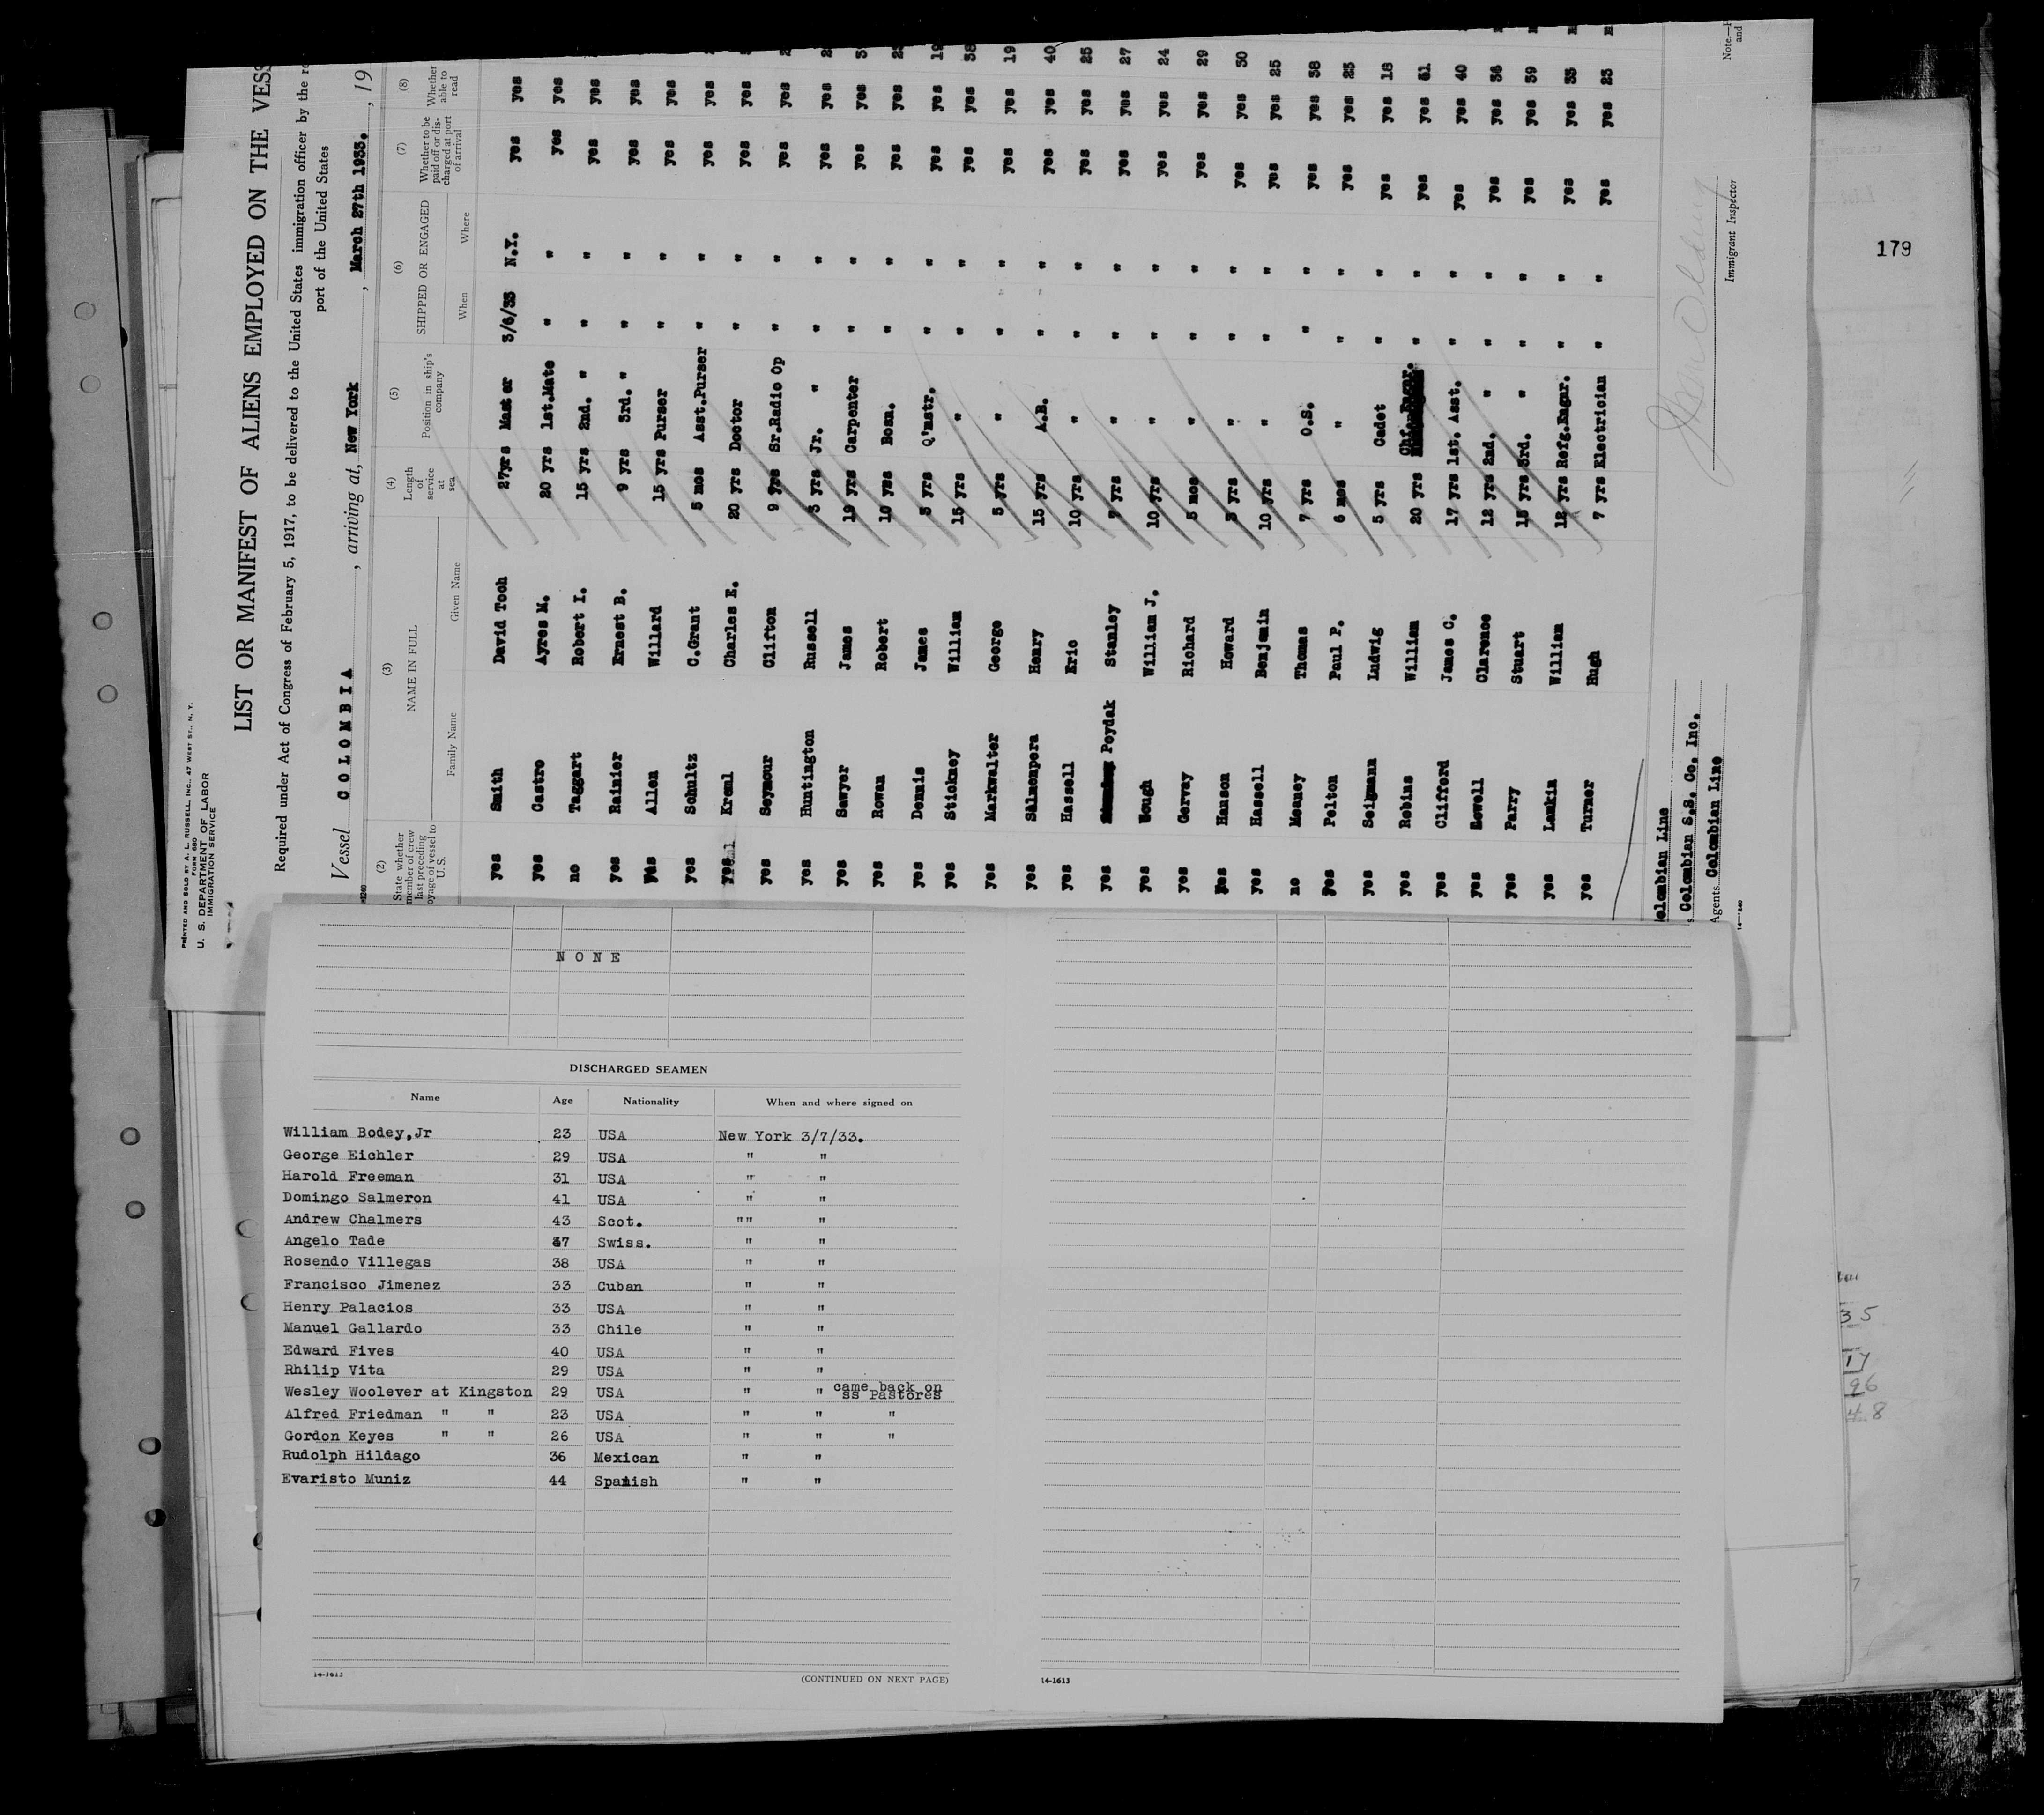 PRINTED AND SOLD BY A. L. RUSSELL, INC., 47 WEST ST., N. Y.
FORM 680
U. S. DEPARTMENT OF LABOR
IMMIGRATION SERVICE
LIST OR MANIFEST OF ALIENS EMPLOYED ON THE VESS
Required under Act of Congress of February 5, 1917, to be delivered to the United States immigration officer by the re
port of the United States
Vessel COLOMBIA, arriving at, New York, March 27th 1933., 19
(2) State whether member of crew last preceding voyage of vessel to U. S.
(3) NAME IN FULL
Family Name Given Name
(4) Length of service at sea
(5) Position in ship's company
(6) SHIPPED OR ENGAGED
When Where
(7) Whether to be paid off or discharged at port of arrival
(8) Whether able to read
yes Smith David Toch 27yrs Master 3/6/33 N.Y. yes yes
yes Castro Ayres M. 20 yrs 1st.Mate " " yes yes
no Taggart Robert I. 15 yrs 2nd. " " " yes yes
yes Rainier Ernest B. 9 yrs 3rd. " " " yes yes
yes Allen Willard 15 yrs Purser " " yes yes
yes Schultz C.Grant 5 mos Asst.Purser " " yes yes
yes Kreml Charles E. 20 yrs Doctor " " yes yes
yes Seymour Clifton 9 yrs Sr.Radio Op " " yes yes
yes Huntington Russell 3 yrs Jr. " " " yes yes
yes Sawyer James 19 yrs Carpenter " " yes yes
yes Rowan Robert 10 yrs Bosn. " " yes yes
yes Dennis James 3 yrs Q'mstr. " " yes yes
yes Stickney William 15 yrs " " " yes yes
yes Markwalter George 5 yrs " " " yes yes 19
yes Salmenpera Henry 15 yrs A.B. " " yes yes 40
yes Hassell Eric 10 yrs " " " yes yes 25
yes Poydak Stanley 7 yrs " " " yes yes 27
yes Wough William J. 10 yrs " " " yes yes 24
yes Gervay Richard 5 mos " " " yes yes 29
yes Hanson Howard 3 yrs " " " yes yes 30
yes Hassell Benjamin 10 yrs " " " yes yes 25
no Meaney Thomas 7 yrs O.S. " " yes yes 38
yes Pelton Paul P. 6 mos " " " yes yes 23
yes Seigmann Ludwig 5 yrs Cadet " " yes yes 18
yes Robins William 20 yrs Chf.Engnr. " " yes yes 51
yes Clifford James C. 17 yrs 1st. Asst. " " yes yes 40
yes Lowell Clarence 12 yrs 2nd. " " " yes yes 36
yes Parry Stuart 15 yrs 3rd. " " " yes yes 39
yes Lamkin William 12 yrs Refg.Engnr. " " yes yes 33
yes Turner Hugh 7 yrs Electrician " " yes yes 23
olombian Line
Colombian S.S. Co. Inc.
Agents Colombian Line
Immigrant Inspector
Note.
and
179
NONE
DISCHARGED SEAMEN
Name Age Nationality When and where signed on
William Bodey,Jr 23 USA New York 3/7/33.
George Eichler 29 USA " "
Harold Freeman 31 USA " "
Domingo Salmeron 41 USA " "
Andrew Chalmers 43 Scot. "" "
Angelo Tade 37 Swiss. " "
Rosendo Villegas 38 USA " "
Francisco Jimenez 33 Cuban " "
Henry Palacios 33 USA " "
Manuel Gallardo 33 Chile " "
Edward Fives 40 USA " "
Rhilip Vita 29 USA " "
Wesley Woolever at Kingston 29 USA " " came back on ss Pastores
Alfred Friedman " " 23 USA " " "
Gordon Keyes " " 26 USA " " "
Rudolph Hildago 36 Mexican " "
Evaristo Muniz 44 Spanish " "
14-1613
(CONTINUED ON NEXT PAGE)
14-1613
35
17
96
48